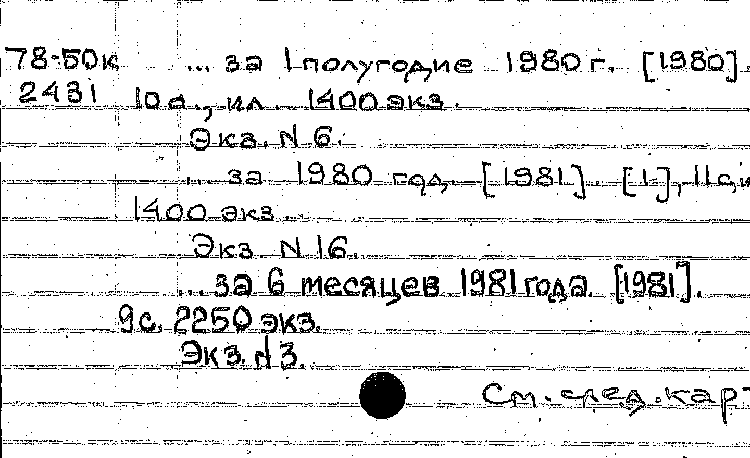 78-50к ... за I полугодие 1980 г. [1980].
2431 10 с., ил. 1400 экз.
Экз. N 6.
... за 1980 год. [1981]. [1], 11 с, и
1400 экз.
Экз N 16.
... за 6 месяцев 1981 года. [1981].
9 с. 2250 экз.
Экз. N 3.
См. след. кар